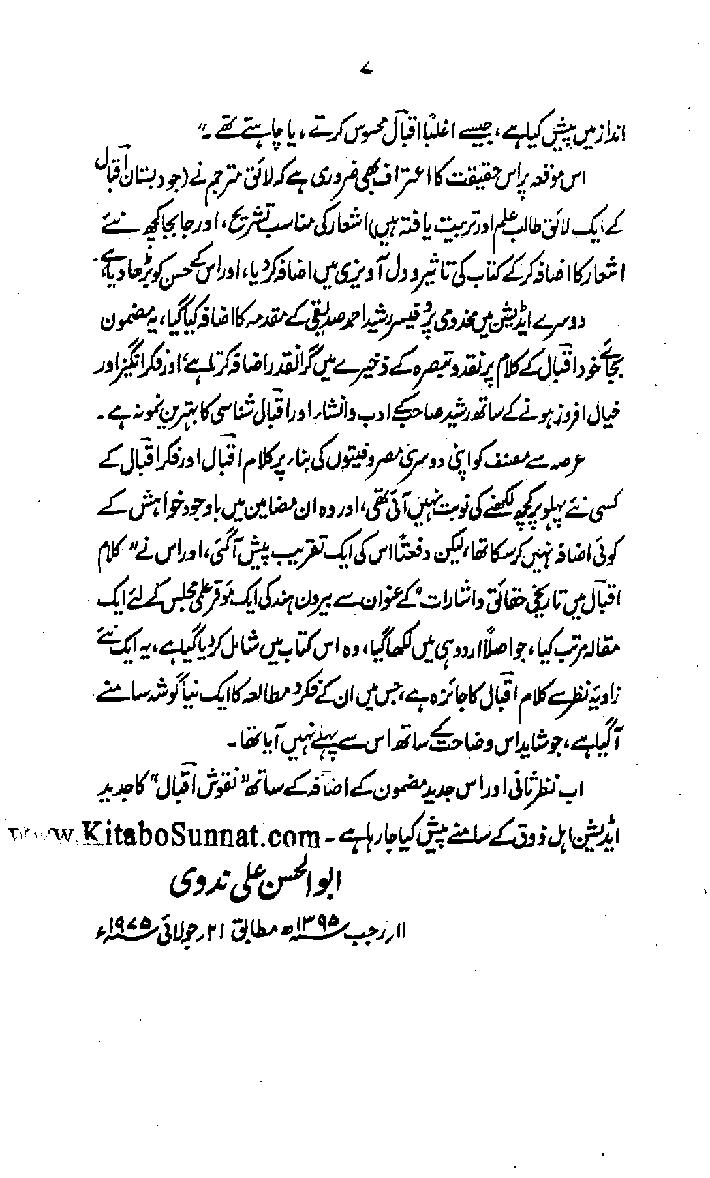 ۷
انداز میں پیش کیا ہے، جیسے اغلباً اقبالؔ محسوس کرتے، یا چاہتے تھے۔"
اس موقعہ پر اس حقیقت کا اعتراف بھی ضروری ہے کہ لائق مترجم نے (جو دبستان اقبالؔ
کے ایک لائق طالب علم اور تربیت یافتہ ہیں) اشعار کی مناسب تشریح، اور جا بجا کچھ نئے
اشعار کا اضافہ کر کے کتاب کی تاثیر و دل آویزی میں اضافہ کر دیا، اور اس کے حسن کو بڑھا دیا ہے۔
دوسرے ایڈیشن میں مخدومی پروفیسر رشید احمد صدیقی کے مقدمہ کا اضافہ کیا گیا، یہ مضمون
بجائے خود اقبال کے کلام پر نقد و تبصرہ کے ذخیرے میں گرانقدر اضافہ کرتا ہے، اور فکر انگیز اور
خیال افروز ہونے کے ساتھ رشید صاحب کے ادب و انشاء اور اقبال شناسی کا بہترین نمونہ ہے۔
عرصہ سے مصنف کو اپنی دوسری مصروفیتوں کی بناء پر کلام اقبالؔ اور فکر اقبال کے
کسی نئے پہلو پر کچھ لکھنے کی نوبت نہیں آئی تھی، اور وہ ان مضامین میں باوجود خواہش کے
کوئی اضافہ نہیں کر سکا تھا، لیکن دفعتاً اس کی ایک تقریب پیش آگئی، اور اس نے "کلام
اقبالؔ میں تاریخی حقائق و اشارات" کے عنوان سے بیرون ہند کی ایک موقر علمی مجلس کے لئے ایک
مقالہ مرتب کیا، جو اصلاً اردو ہی میں لکھا گیا، وہ اس کتاب میں شامل کر دیا گیا ہے، یہ ایک نئے
زاویۂ نظر سے کلام اقبالؔ کا جائزہ ہے، جس میں ان کے فکر و مطالعہ کا ایک نیا گوشہ سامنے
آگیا ہے، جو شاید اس وضاحت کے ساتھ اس سے پہلے نہیں آیا تھا۔
اب نظر ثانی اور اس جدید مضمون کے اضافہ کے ساتھ "نقوش اقبالؔ" کا جدید
ایڈیشن اہل ذوق کے سامنے پیش کیا جا رہا ہے۔ w.KitaboSunnat.com
ابوالحسن علی ندوی
۱۱؍ رجب ۱۳۹۵ھ مطابق ۲۱؍ جولائی ۱۹۷۵ء